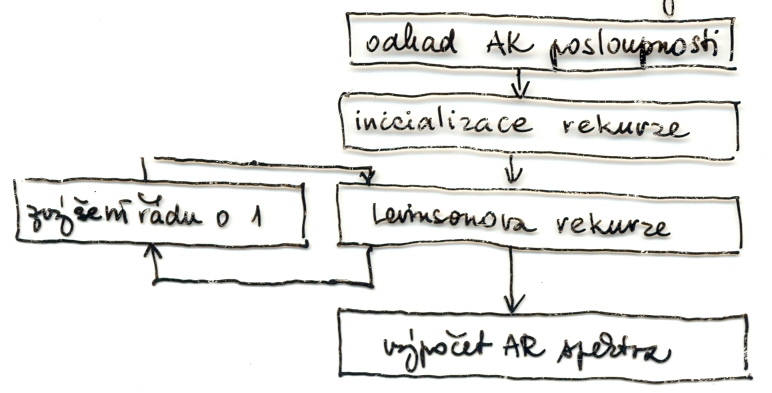 odhad AK posloupnosti
inicializace rekurze
zvýšení řádu o 1
Levinsonova rekurze
výpočet AR spektra